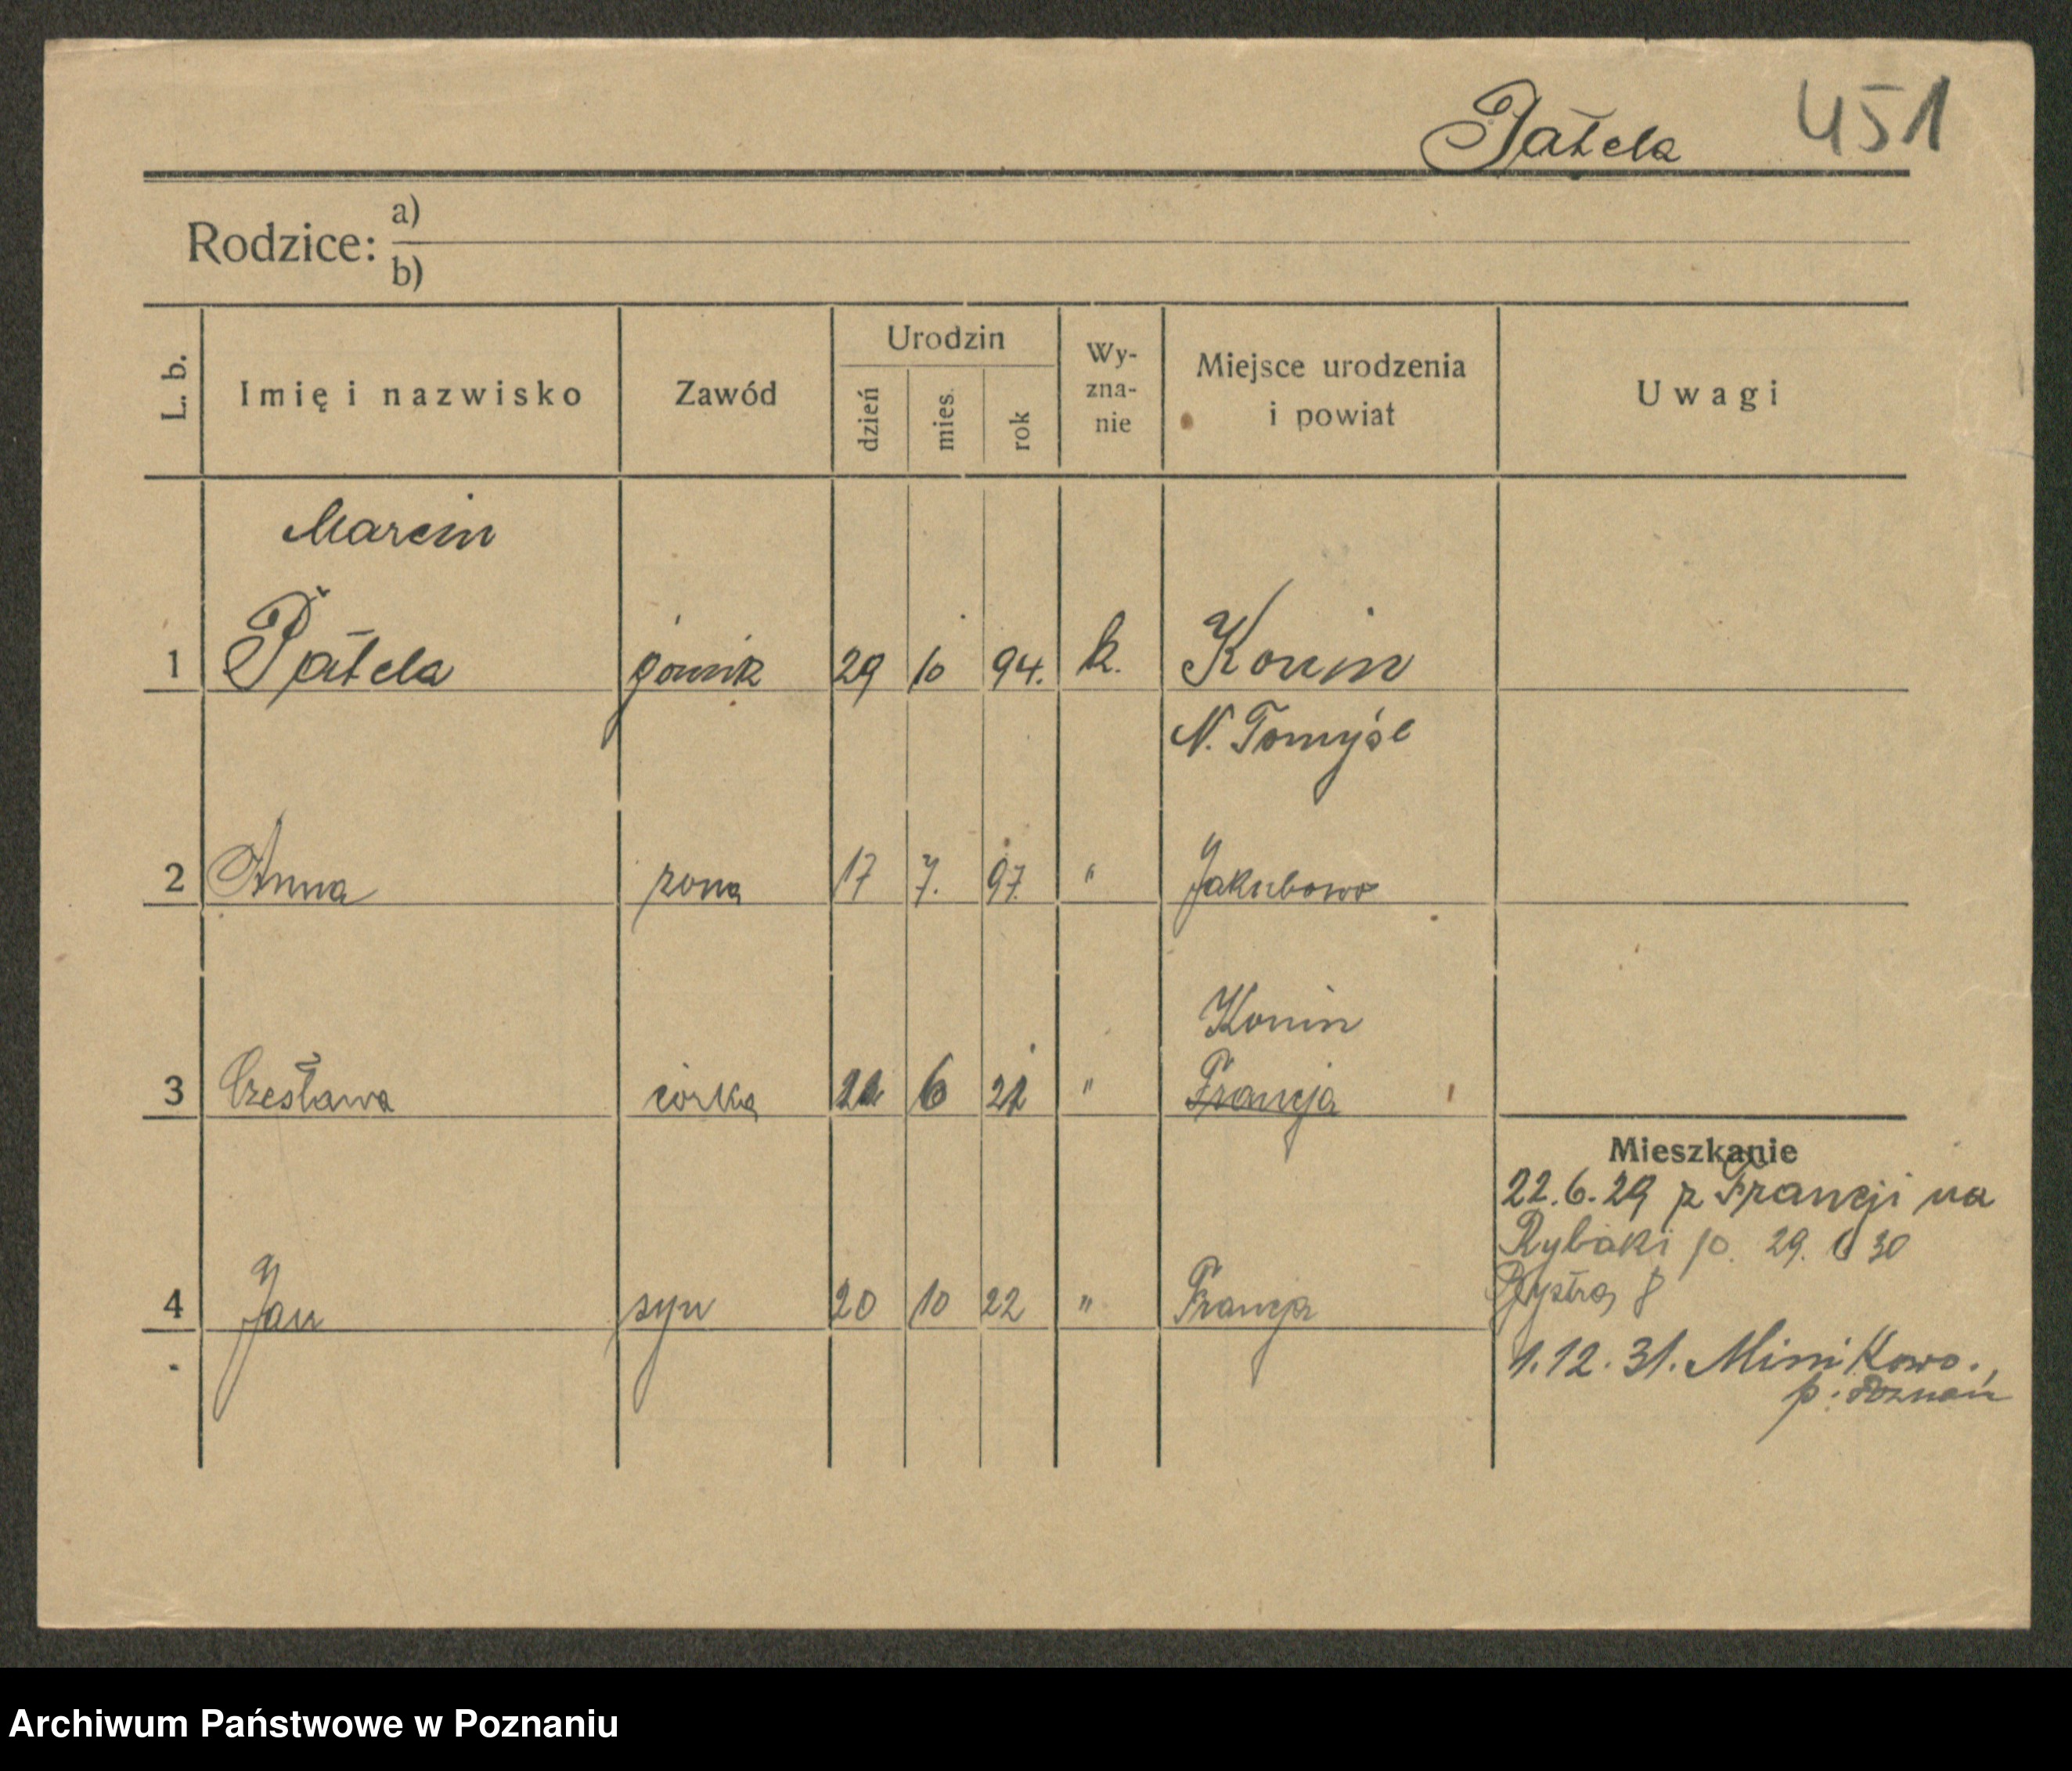 Pałela 451
Rodzice: a)
b)
L. b. Imię i nazwisko Zawód Urodzin dzień mies. rok Wy-zna-nie Miejsce urodzenia i powiat Uwagi
Marcin
1 Pałela górnik 29 10 94. k. Konin
N. Tomyśl
2 Anna żona 17 7. 97. " Jakubowo
Konin
3 Czesława córka 6 21 " Francja
Mieszkanie
22.6.29 z Francji na
Rybaki 10. 29. 6 30
Bystra 8
4 Jan syn 20 10 22 " Francja
1.12.31. Minikowo.,
p. Poznań
Archiwum Państwowe w Poznaniu